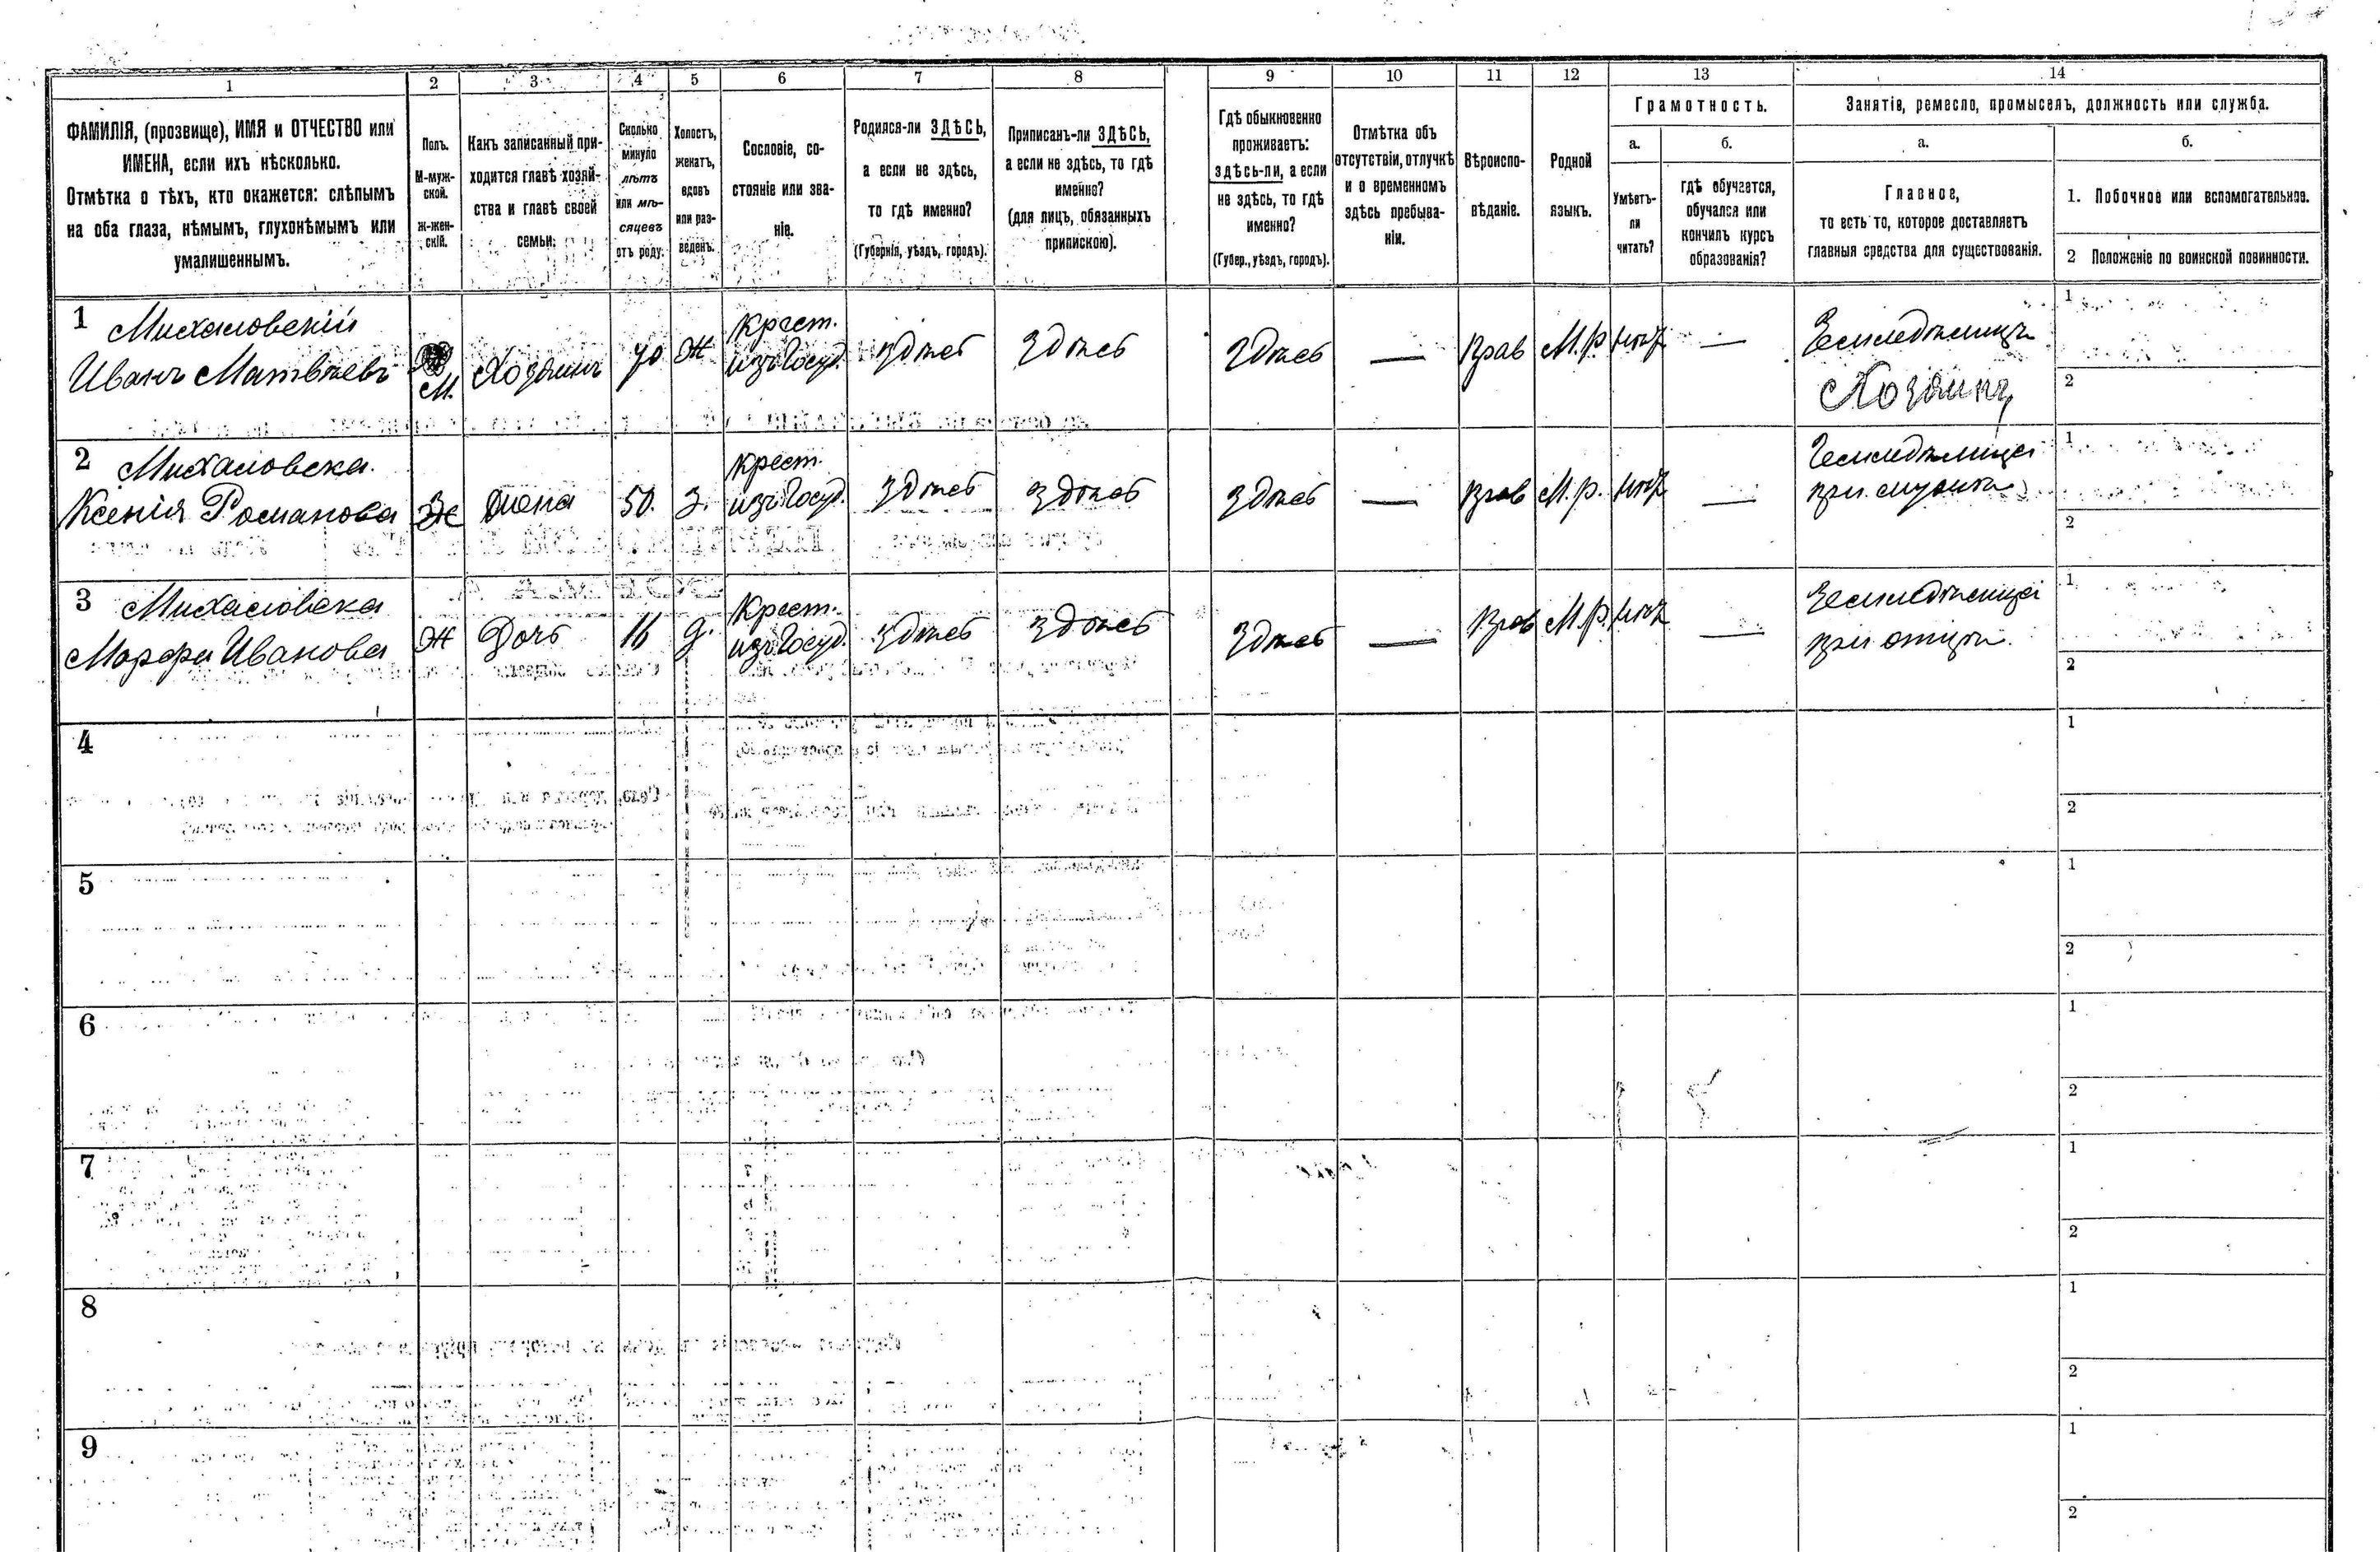 1 2 3 4 5 6 7 8 9 10 11 12 13 14
ФАМИЛІЯ, (прозвище), ИМЯ и ОТЧЕСТВО или
ИМЕНА, если ихъ нѣсколько.
Отмѣтка о тѣхъ, кто окажется: слѣпымъ
на оба глаза, нѣмымъ, глухонѣмымъ или
умалишеннымъ.
Полъ.
М-муж-
ской.
Ж-жен-
скій.
Какъ записанный при-
ходится главѣ хозяй-
ства и главѣ своей
семьи.
Сколько
минуло
лѣтъ
или мѣ-
сяцевъ
отъ роду.
Холостъ,
женатъ,
вдовъ
или раз-
веденъ.
Сословіе, со-
стояніе или зва-
ніе.
Родился-ли ЗДѢСЬ,
а если не здѣсь,
то гдѣ именно?
(Губернія, уѣздъ, городъ).
Приписанъ-ли ЗДѢСЬ,
а если не здѣсь, то гдѣ
именно?
(для лицъ, обязанныхъ
припискою).
Гдѣ обыкновенно
проживаетъ:
здѣсь-ли, а если
не здѣсь, то гдѣ
именно?
(Губер., уѣздъ, городъ).
Отмѣтка объ
отсутствіи, отлучкѣ
и о временномъ
здѣсь пребыва-
ніи.
Вѣроиспо-
вѣданіе.
Родной
языкъ.
Грамотность.
а.
Умѣетъ-
ли
читать?
б.
гдѣ обучается,
обучался или
кончилъ курсъ
образованія?
Занятіе, ремесло, промыселъ, должность или служба.
а.
Главное,
то есть то, которое доставляетъ
главныя средства для существованія.
б.
1. Побочное или вспомогательное.
2 Положеніе по воинской повинности.
1 Михаловскій
Иванъ Матвѣевъ
М.
Хозяинъ
70
Ж
Крест.
изъ Госуд.
Здѣсь
Здѣсь
Здѣсь
—
Прав
М.р.
нѣтъ
—
Земледѣлецъ
Хозяинъ
1
2
2 Михаловска
Ксенія Романова
Ж
Жена
50.
З.
Крест.
изъ Госуд.
Здѣсь
Здѣсь
Здѣсь
—
Прав
М.р.
нѣтъ
—
Земледѣлица
при мужѣ
1
2
3 Михаловска
Марфа Иванова
Ж
Дочь
16
Д.
Крест.
изъ Госуд.
Здѣсь
Здѣсь
Здѣсь
—
Прав
М.р.
нѣтъ
—
Земледѣлица
при отцѣ.
1
2
4
1
2
5
1
2
6
1
2
7
1
2
8
1
2
9
1
2